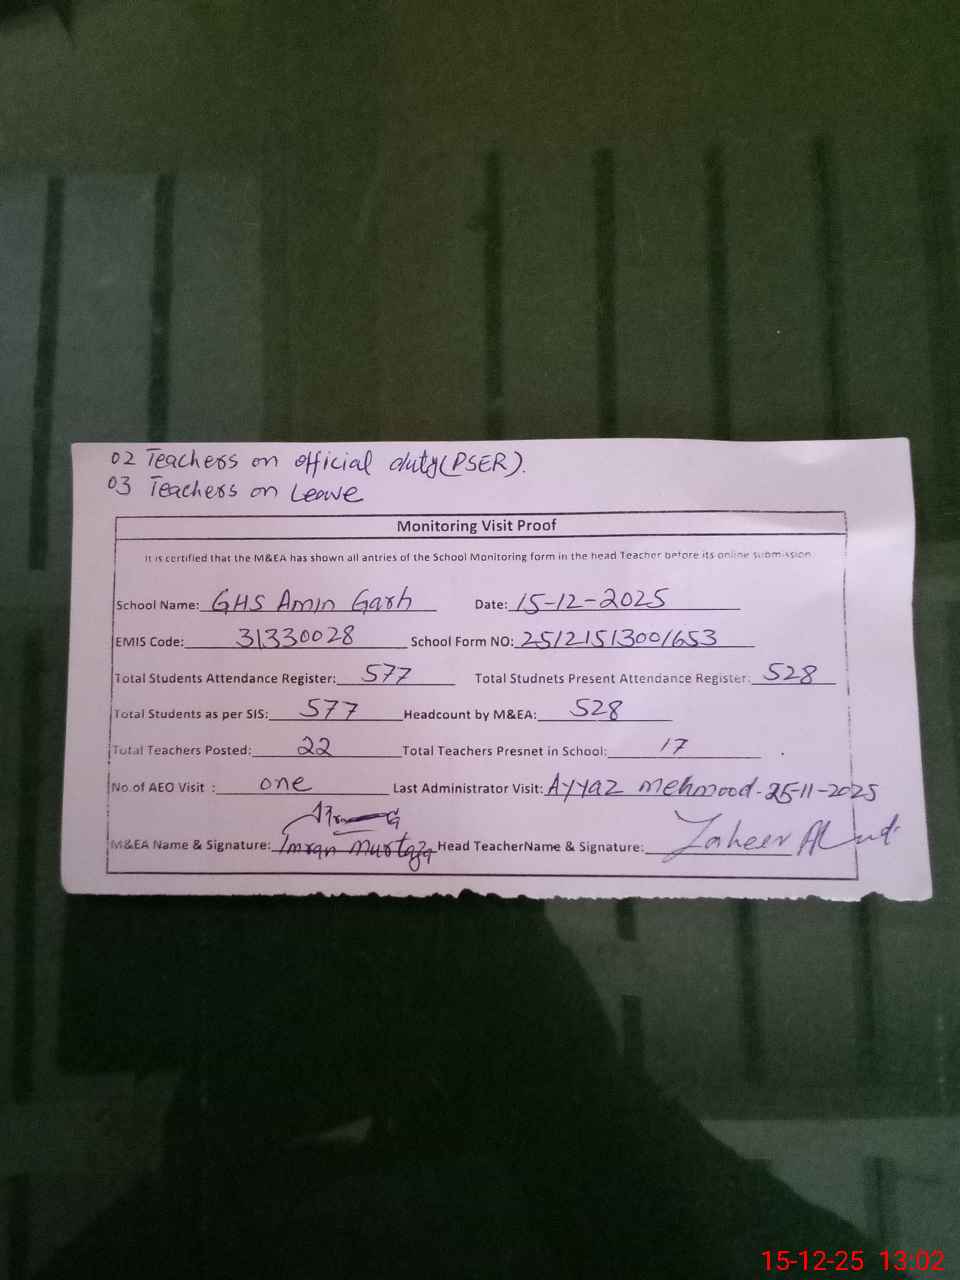 02 Teachers on official duty(PSER).
03 Teachers on Leave
Monitoring Visit Proof
It is certified that the M&EA has shown all antries of the School Monitoring form in the head Teacher before its online submission
School Name: GHS Amin Garh Date: 15-12-2025
EMIS Code: 31330028 School Form NO: 25121513001653
Total Students Attendance Register: 577 Total Studnets Present Attendance Register: 528
Total Students as per SIS: 577 Headcount by M&EA: 528
Total Teachers Posted: 22 Total Teachers Presnet in School: 17
No.of AEO Visit : one Last Administrator Visit: Ayyaz mehmood-25-11-2025
M&EA Name & Signature: Imran Murtaza Head TeacherName & Signature: Zaheer
15-12-25 13:02